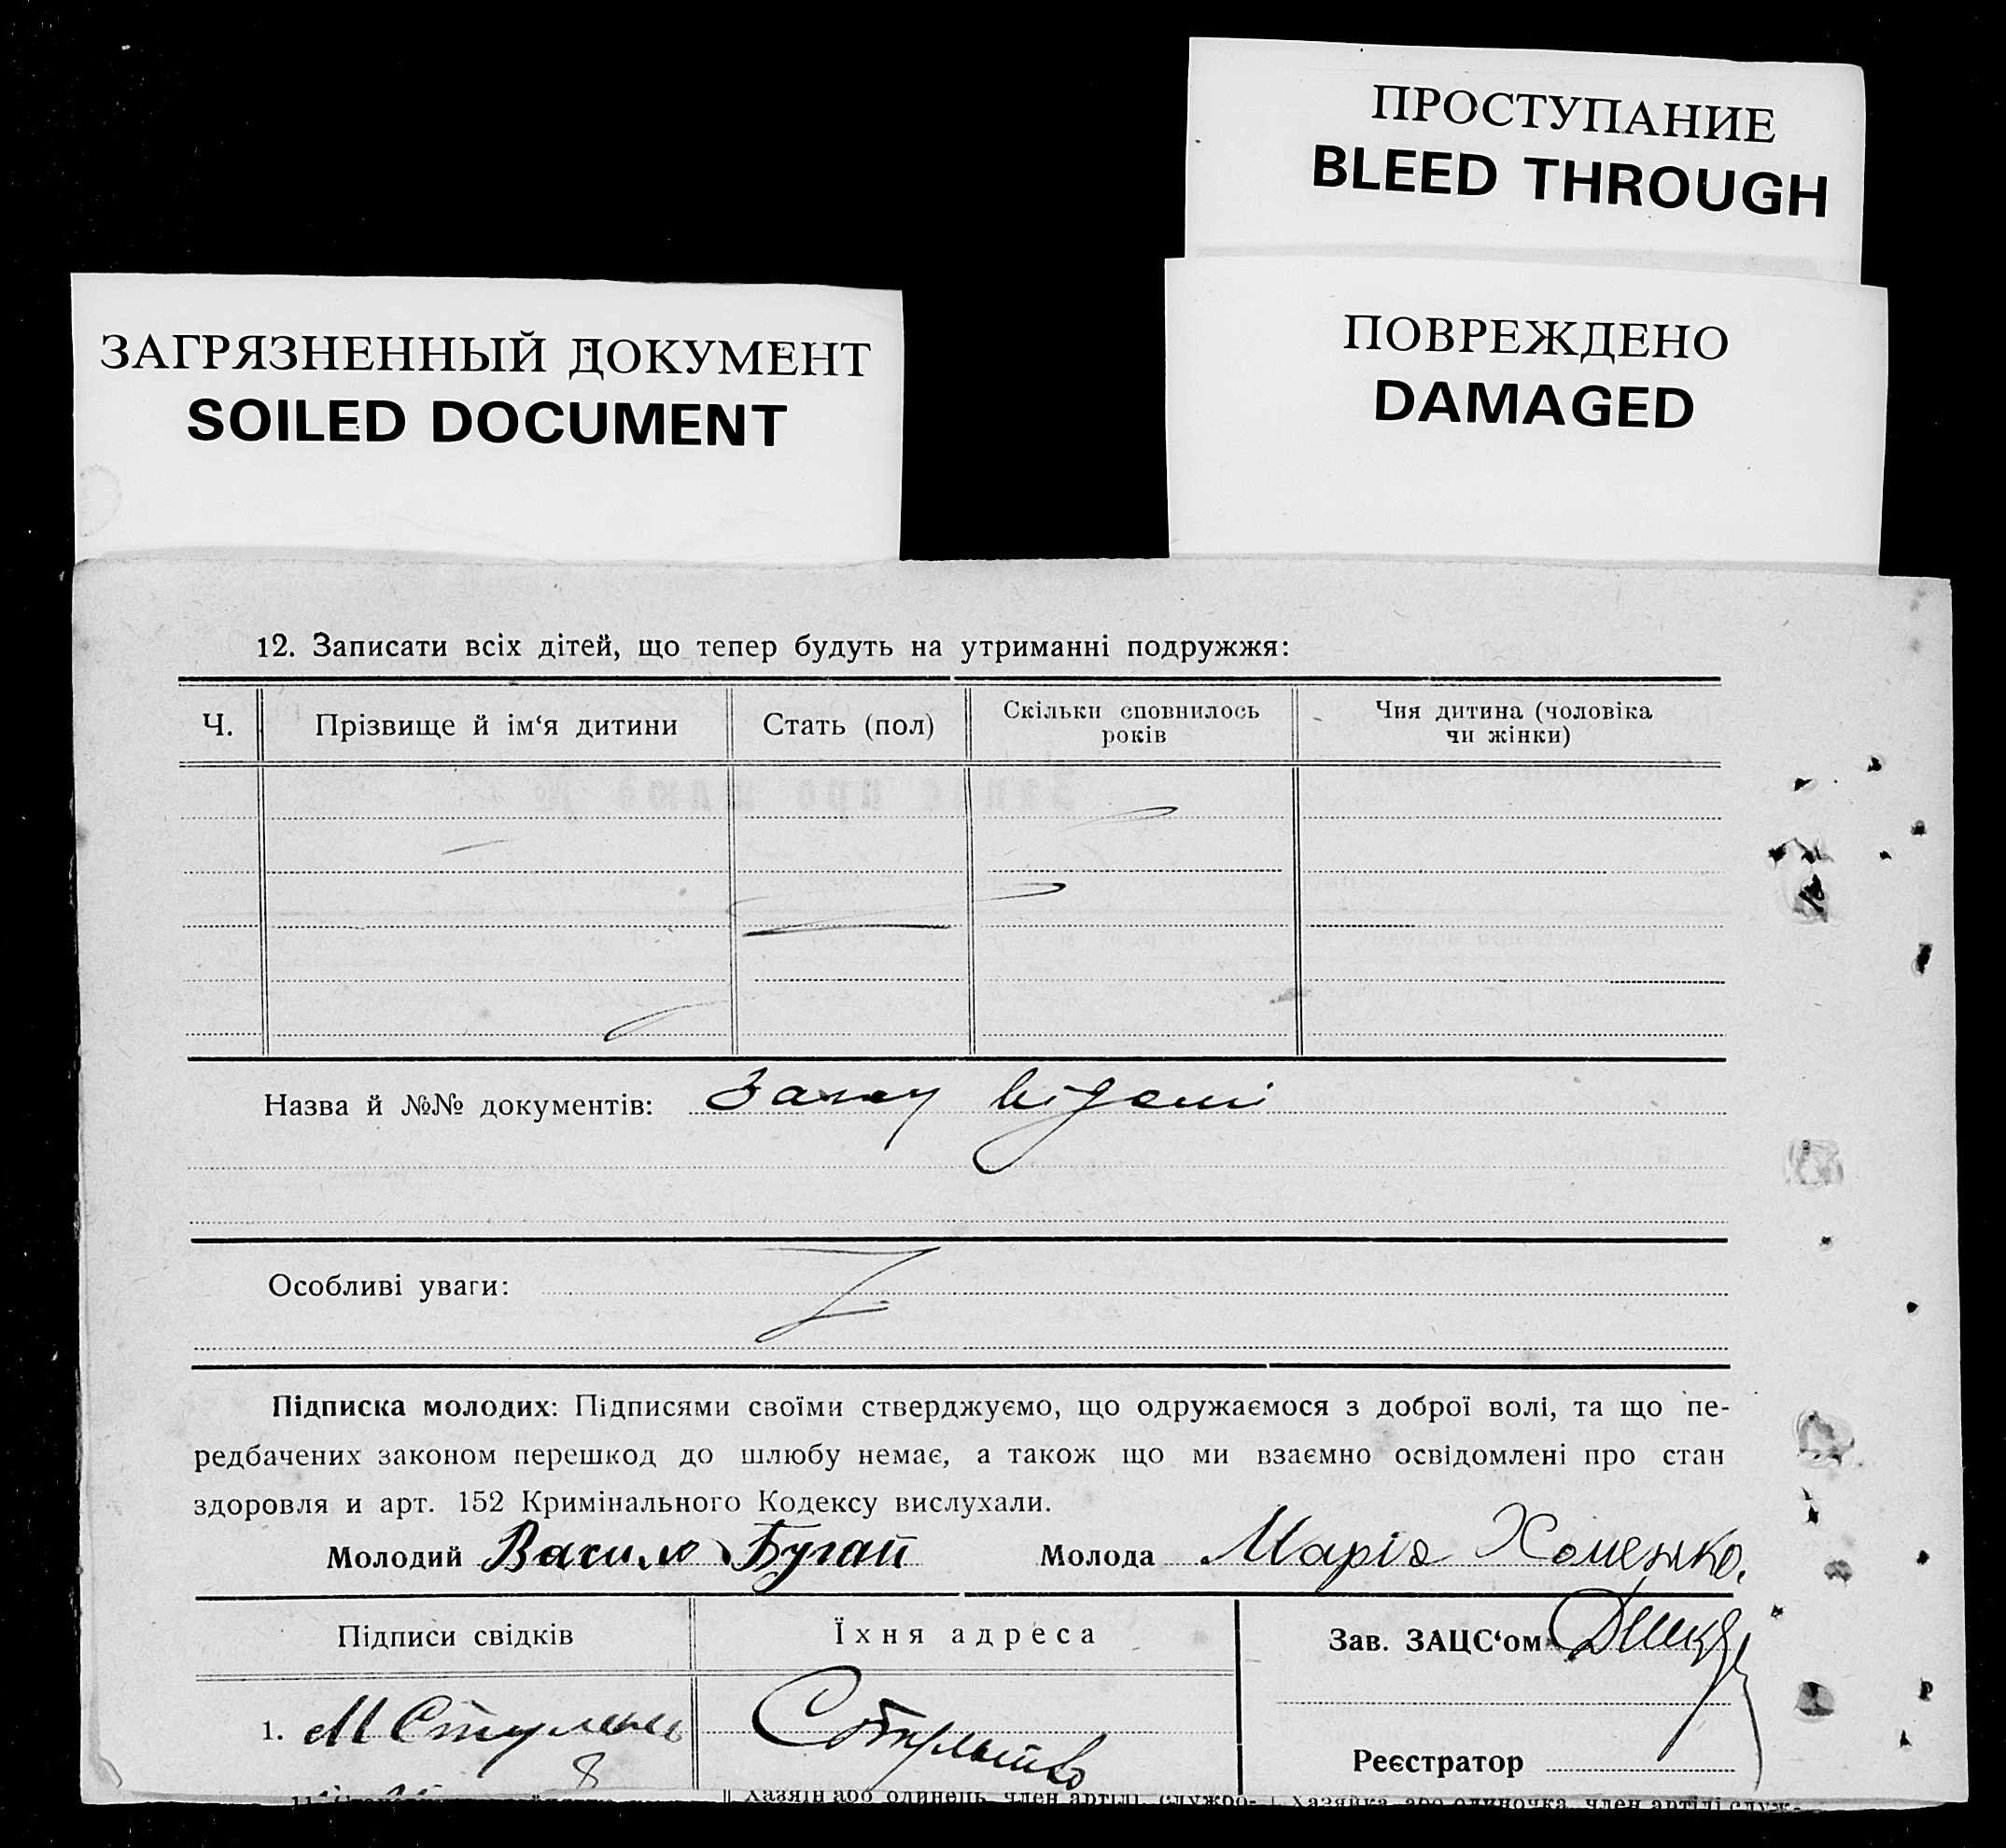 ПРОСТУПАНИЕ
BLEED THROUGH
ПОВРЕЖДЕНО
DAMAGED
ЗАГРЯЗНЕННЫЙ ДОКУМЕНТ
SOILED DOCUMENT
12. Записати всіх дітей, що тепер будуть на утриманні подружжя:
Ч. Прізвище й ім‘я дитини Стать (пол) Скільки сповнилось років Чия дитина (чоловіка чи жінки)
Назва й №№ документів:
Особливі уваги:
Підписка молодих: Підписями своїми стверджуємо, що одружаємося з доброї волі, та що пе-
редбачених законом перешкод до шлюбу немає, а також що ми взаємно освідомлені про стан
здоровля и арт. 152 Кримінального Кодексу вислухали.
Молодий Васило Бугай Молода Марія Хоменко.
Підписи свідків Їхня адреса Зав. ЗАЦС‘ом
1. М
Реєстратор
Хазяїн або одинець, член артілі, службо- Хазяйка, або одиночка, член артілі служ-